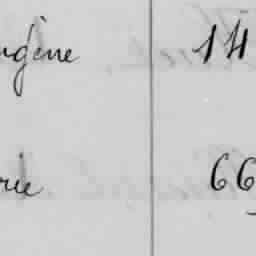 ugène 14
rie 66